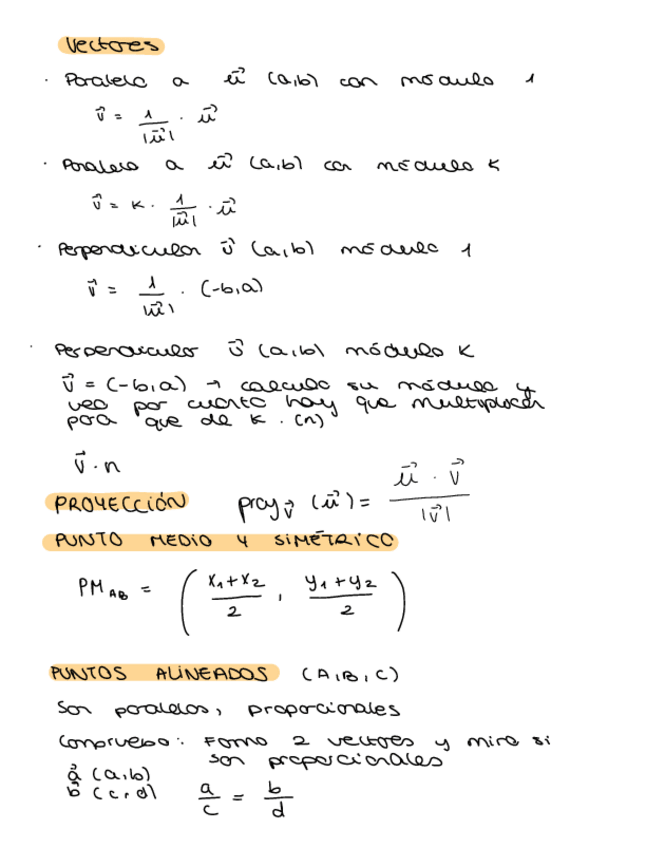 Vectores
· Paralelo a u⃗ (a,b) con módulo 1
v⃗ = 1/|u⃗| · u⃗
· Paralelo a u⃗ (a,b) con módulo K
v⃗ = K · 1/|u⃗| · u⃗
· Perpendicular v⃗ (a,b) módulo 1
v⃗ = 1/|u⃗| · (-b,a)
· Perpendicular v⃗ (a,b) módulo K
v⃗ = (-b,a) → calculo su módulo y
veo por cuanto hay que multiplicar
para que de K. (n)
v⃗ · n
PROYECCIÓN proy v⃗ (u⃗) = u⃗ · v⃗ / |v⃗|
PUNTO MEDIO Y SIMÉTRICO
PM AB = ( x₁+x₂ / 2 , y₁+y₂ / 2 )
PUNTOS ALINEADOS (A,B,C)
Son paralelos, proporcionales
Compruebo: Formo 2 vectores y miro si
son proporcionales
a⃗ (a,b)
b⃗ (c,d) a/c = b/d